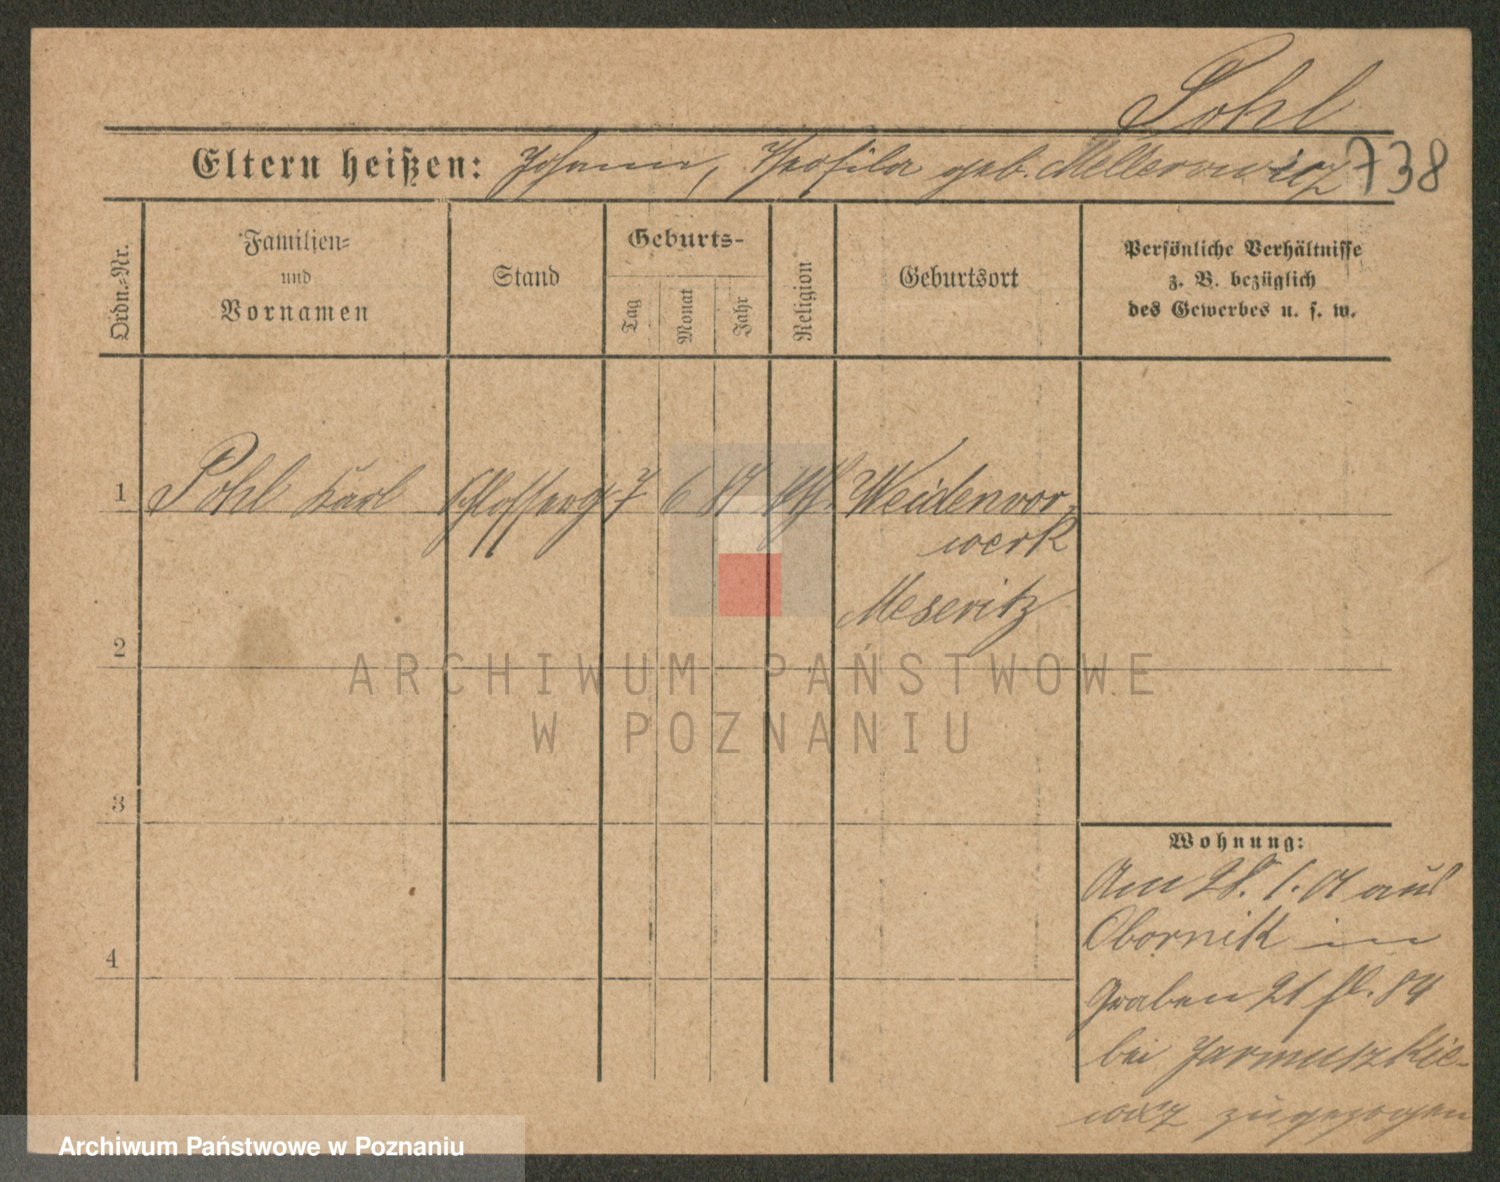 Pohl
Eltern heißen: Johann, Theofila geb. Mellerowicz
738
Ordn.-Nr.
Familien-
und
Vornamen
Stand
Geburts-
Tag
Monat
Jahr
Religion
Geburtsort
Persönliche Verhältnisse
z. B. bezüglich
des Gewerbes u. s. w.
1 Pohl Karl Schlosserg. 7 6 87 kth Weidenvor-
werk
Meseritz
2
3
4
Wohnung:
Am 28. 1. 07 aus
Obornik in
Graben 21 fl. 84
bei Jarmuszkie-
wicz zugezogen
ARCHIWUM PAŃSTWOWE
W POZNANIU
Archiwum Państwowe w Poznaniu